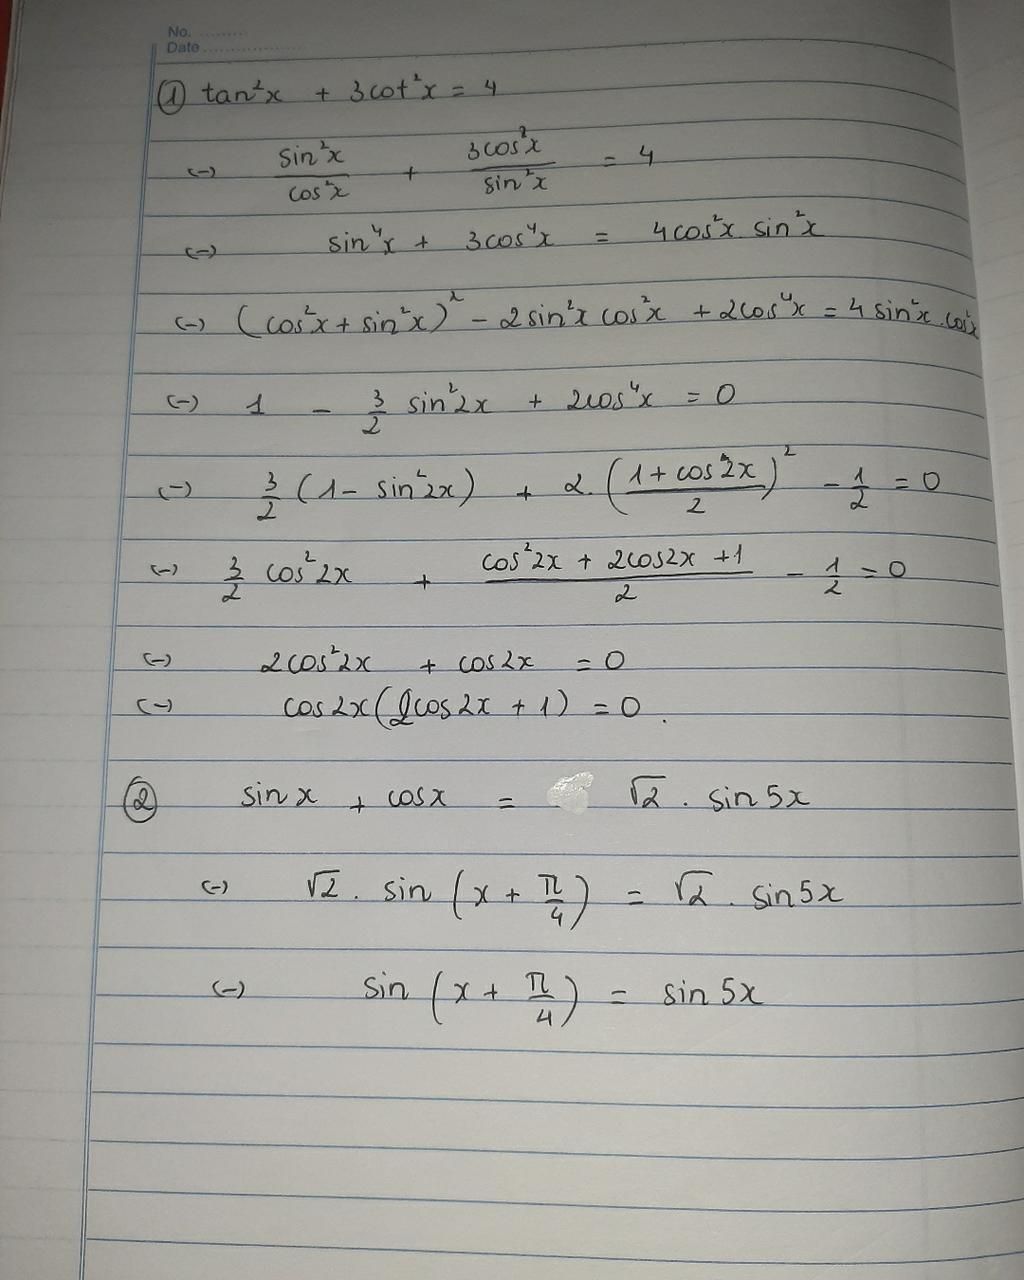 No. .........
Date ..................
① tan²x + 3cot²x = 4
(-) sin²x/cos²x + 3cos²x/sin²x = 4
(-) sin⁴x + 3cos⁴x = 4cos²x sin²x
(-) (cos²x + sin²x)² - 2sin²x cos²x + 2cos⁴x = 4 sin²x.cos²x
(-) 1 - 3/2 sin²2x + 2cos⁴x = 0
(-) 3/2 (1 - sin²2x) + 2.((1 + cos2x)/2)² - 1/2 = 0
(-) 3/2 cos²2x + (cos²2x + 2cos2x + 1)/2 - 1/2 = 0
(-) 2cos²2x + cos2x = 0
(-) cos2x(2cos2x + 1) = 0.
② sinx + cosx = √2 . sin5x
(-) √2 . sin(x + π/4) = √2 . sin5x
(-) sin(x + π/4) = sin5x